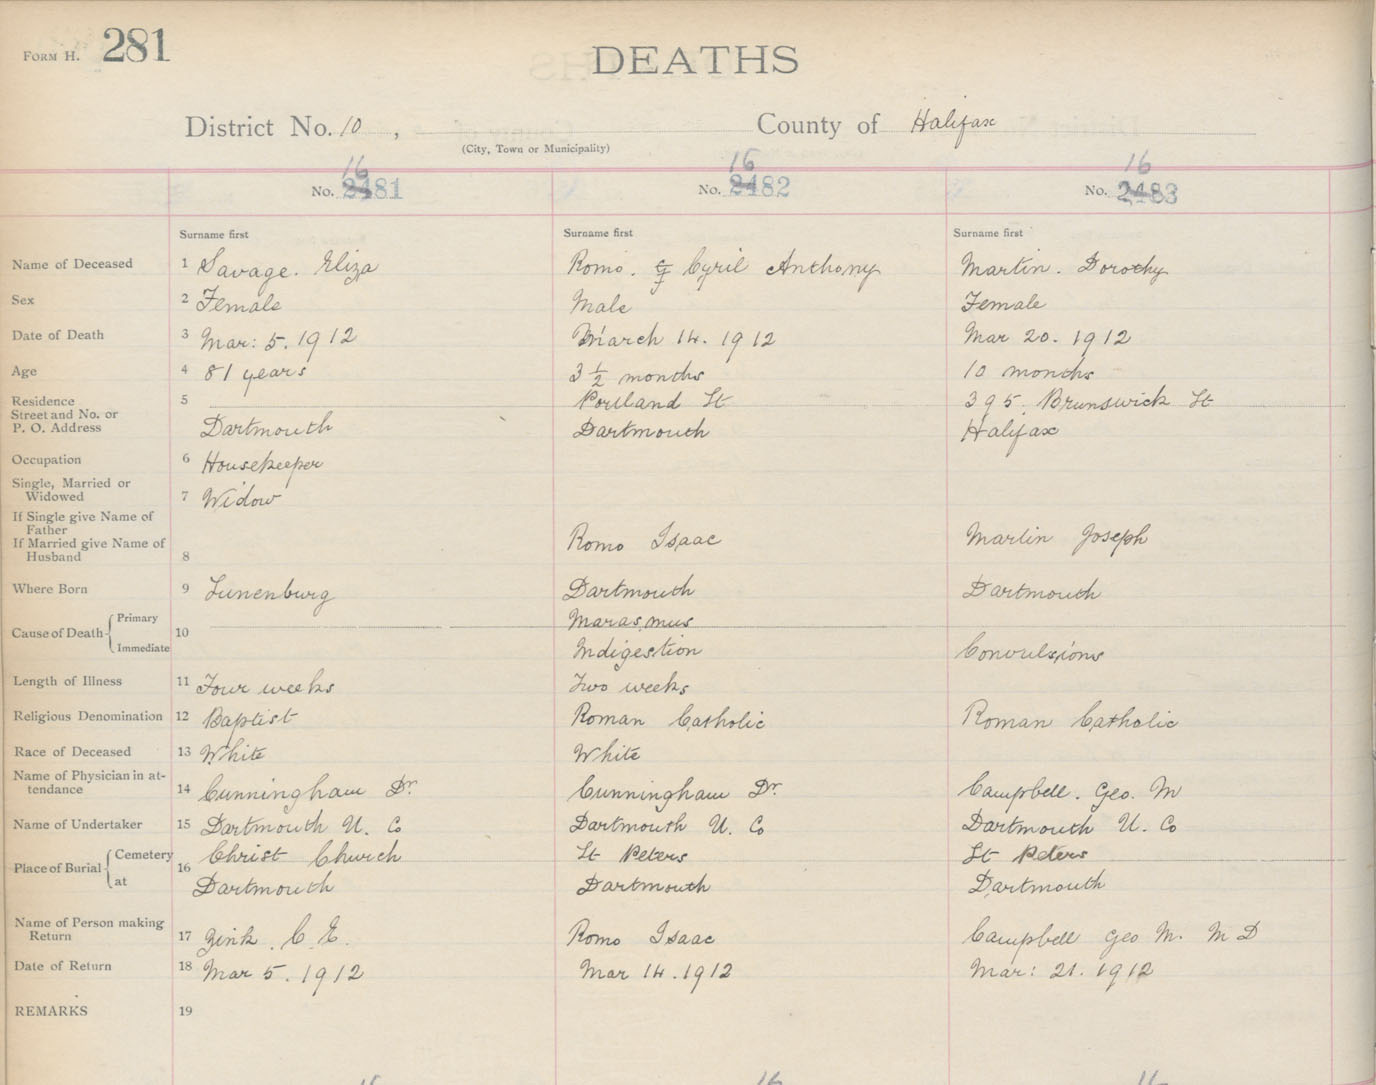 FORM H. 281
DEATHS
District No. 10 , County of Halifax
(City, Town or Municipality)
16 16 16
No. 2481 No. 2482 No. 2483
Surname first Surname first Surname first
Name of Deceased 1 Savage. Eliza Romo. Cyril Anthony Martin. Dorothy
Sex 2 Female Male Female
Date of Death 3 Mar: 5. 1912 March 14. 1912 Mar 20. 1912
Age 4 81 years 3 1/2 months 10 months
Residence 5 Portland St 395. Brunswick St
Street and No. or
P. O. Address Dartmouth Dartmouth Halifax
Occupation 6 Housekeeper
Single, Married or
Widowed 7 Widow
If Single give Name of
Father
If Married give Name of Romo Isaac Martin Joseph
Husband 8
Where Born 9 Lunenburg Dartmouth Dartmouth
Primary Marasmus
Cause of Death 10
Immediate Indigestion Convulsions
Length of Illness 11 Four weeks Two weeks
Religious Denomination 12 Baptist Roman Catholic Roman Catholic
Race of Deceased 13 White White
Name of Physician in at-
tendance 14 Cunningham Dr. Cunningham Dr. Campbell. Geo. M
Name of Undertaker 15 Dartmouth U. Co Dartmouth U. Co Dartmouth U. Co
Cemetery Christ Church St Peters St Peters
Place of Burial 16
at Dartmouth Dartmouth Dartmouth
Name of Person making
Return 17 Zink. C. E. Romo Isaac Campbell Geo M. M D
Date of Return 18 Mar 5. 1912 Mar 14. 1912 Mar: 21. 1912
REMARKS 19